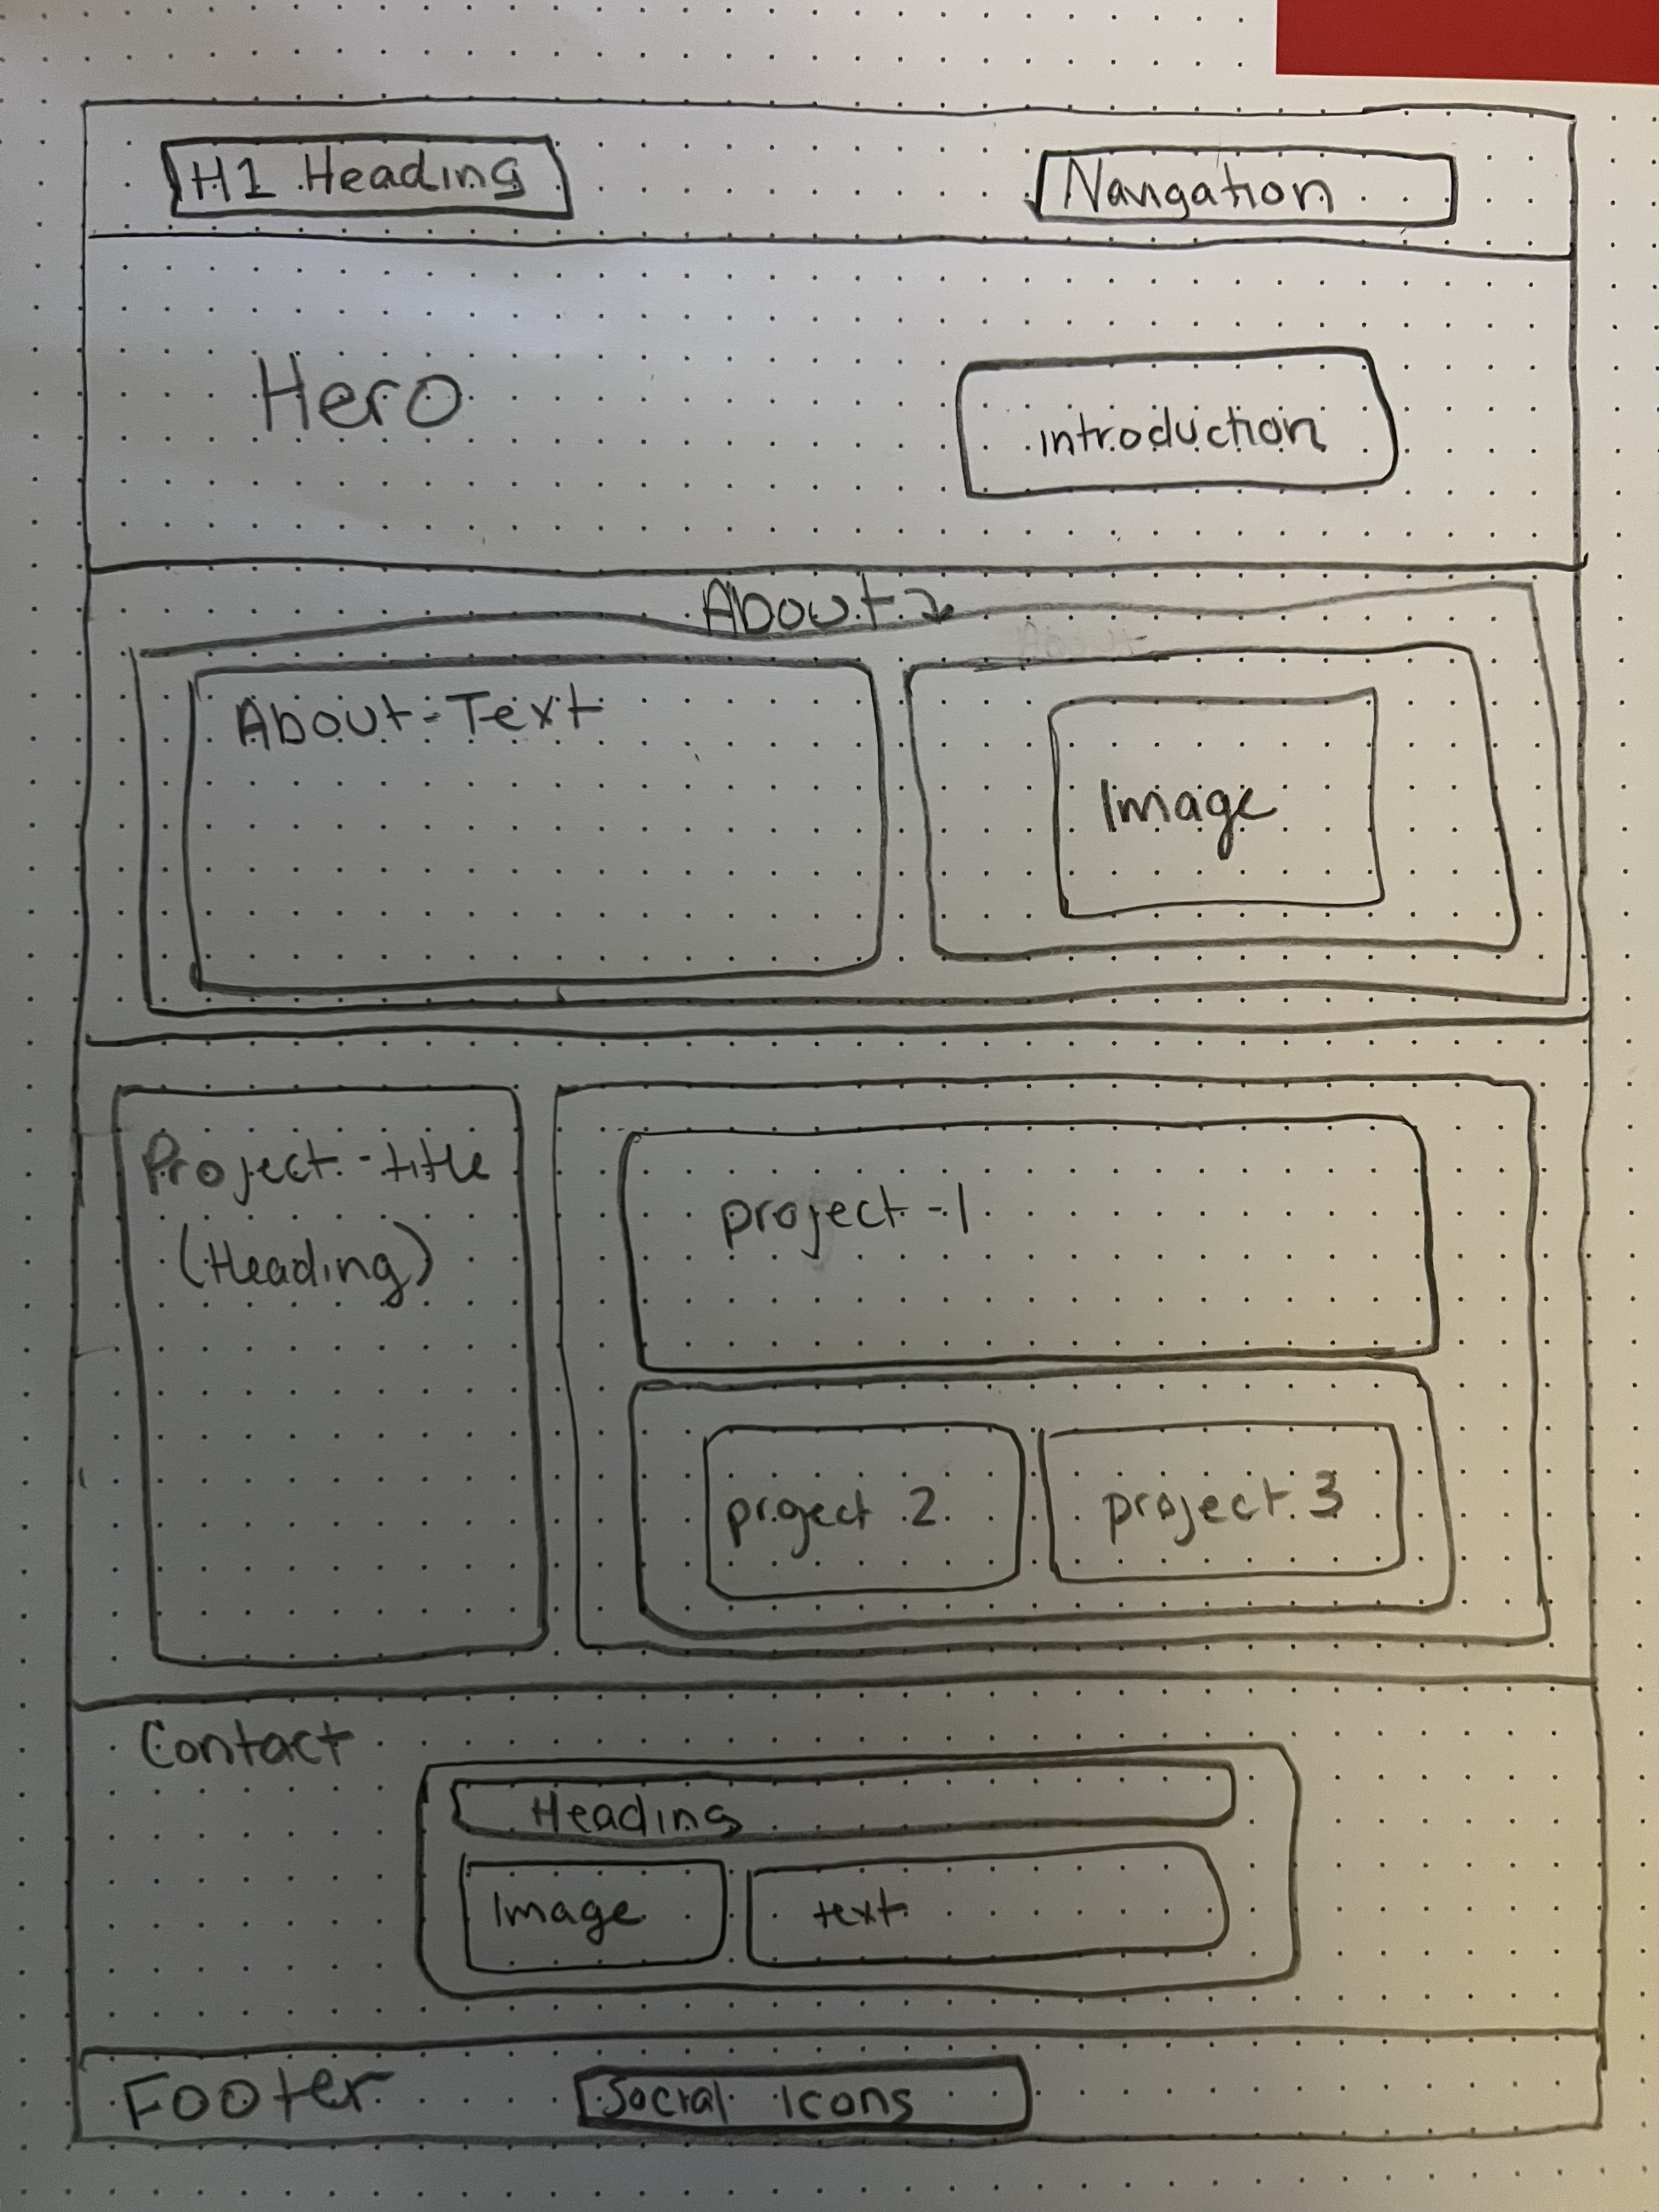 H1 Heading
Navigation
Hero
introduction
About
About-Text
Image
Project-title
(Heading)
project-1
project 2
project 3
Contact
Heading
Image
text
Footer
Social icons